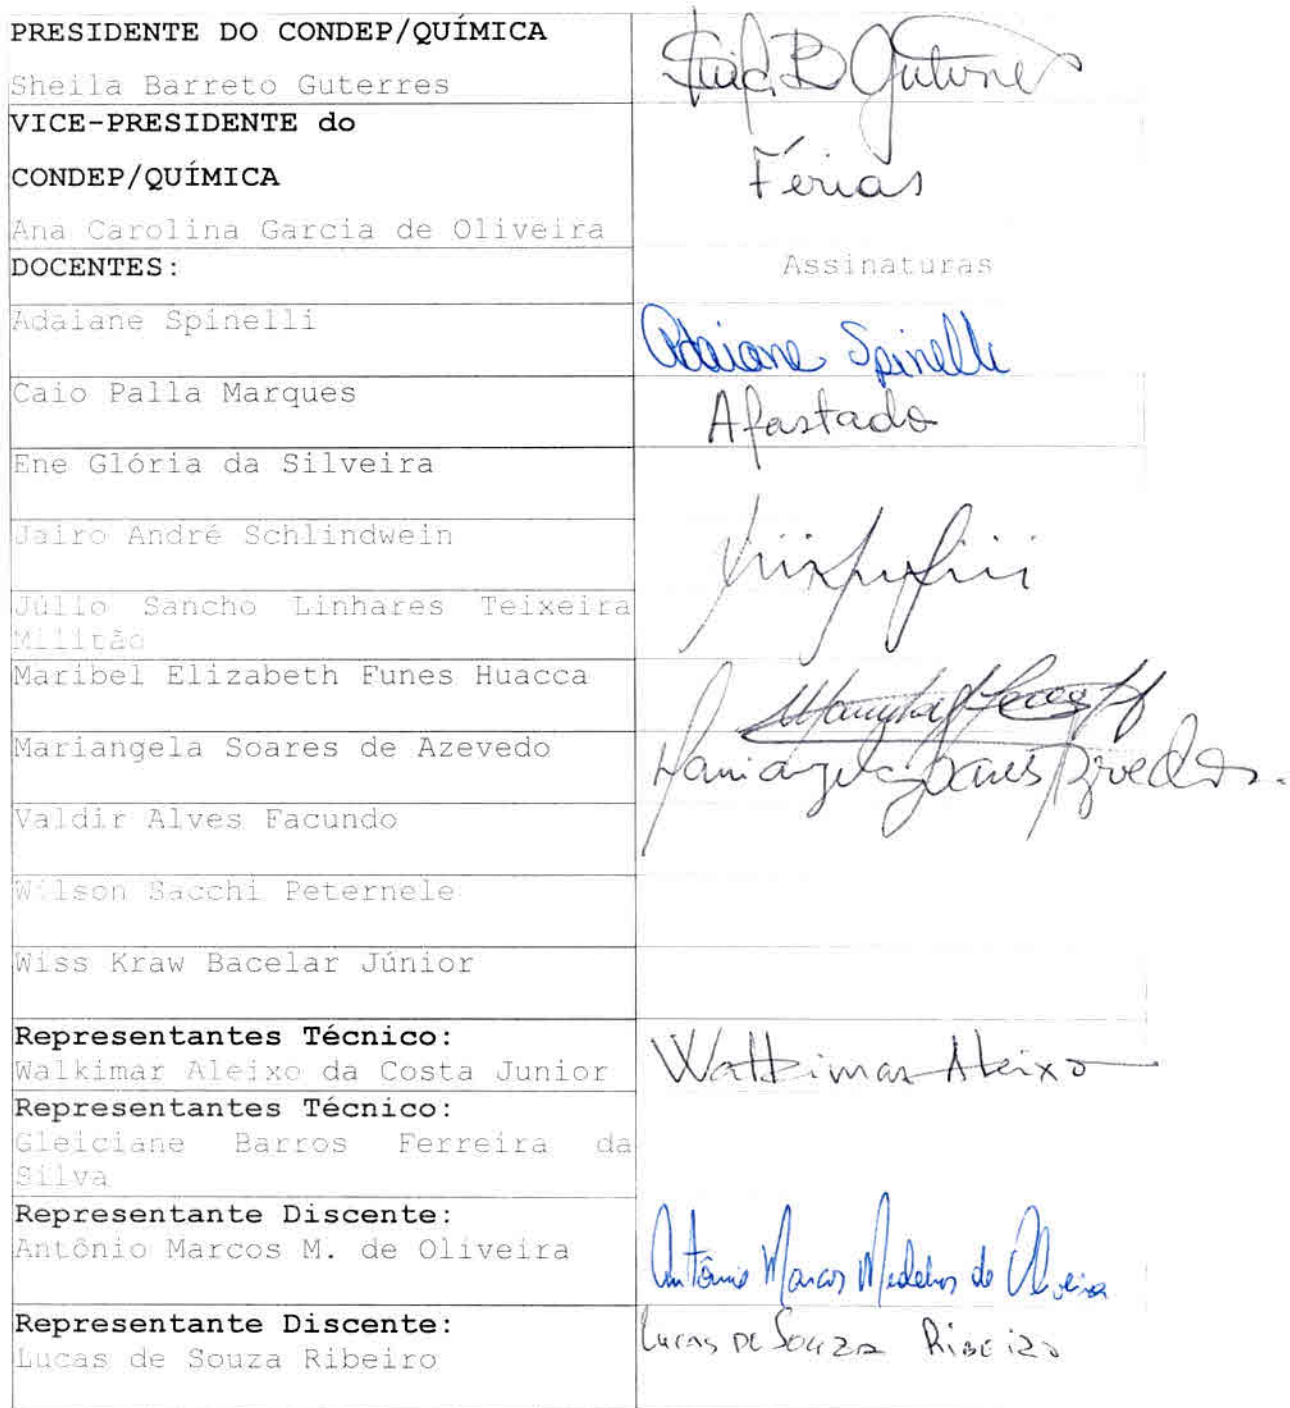 PRESIDENTE DO CONDEP/QUÍMICA
Sheila Barreto Guterres
VICE-PRESIDENTE do
CONDEP/QUÍMICA
Férias
Ana Carolina Garcia de Oliveira
DOCENTES:
Assinaturas
Adaiane Spinelli
Adaiane Spinelli
Caio Palla Marques
Afastado
Ene Glória da Silveira
Jairo André Schlindwein
Júlio Sancho Linhares Teixeira
Militão
Maribel Elizabeth Funes Huacca
Mariangela Soares de Azevedo
Mariangela Soares Azevedo.
Valdir Alves Facundo
Wilson Sacchi Peternele
Wiss Kraw Bacelar Júnior
Representantes Técnico:
Walkimar Aleixo da Costa Junior
Walkimar Aleixo
Representantes Técnico:
Gleiciane Barros Ferreira da
Silva
Representante Discente:
Antônio Marcos M. de Oliveira
Antônio Marcos Medeiros de Oliveira
Representante Discente:
Lucas de Souza Ribeiro
Lucas DE Souza Ribeiro